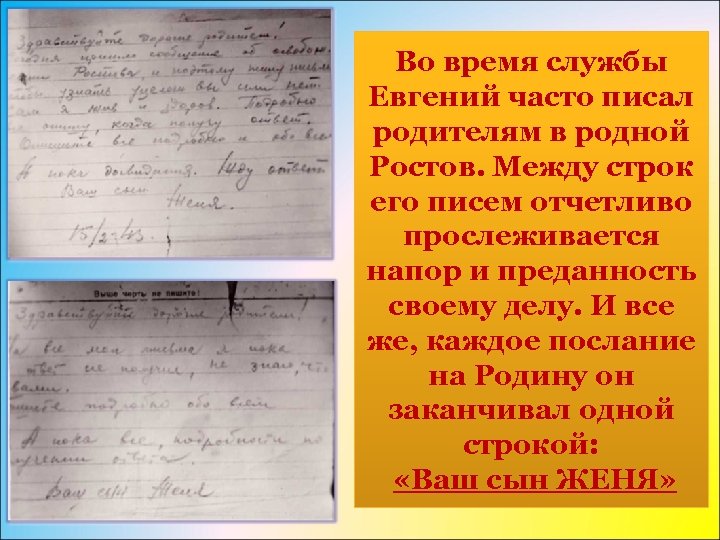 Здравствуйте дорогие родители!
принял сообщение об освобож-
дении Ростова, и поэтому пишу письмо
чтобы узнать уцелели вы или нет.
Сам я жив и здоров. Подробно
опишу, когда получу ответ.
Опишите все подробно и обо всем
А пока досвидания. Жду ответа
Ваш сын
Женя.
15/2-43.
Выше черты не пишите!
Здравствуйте дорогие родители!
На все мои письма я пока
ответ не получил, не знаю, что
с вами.
Пишите подробно обо всем
А пока все, подробности по
лучении ответа.
Ваш сын Женя
Во время службы
Евгений часто писал
родителям в родной
Ростов. Между строк
его писем отчетливо
прослеживается
напор и преданность
своему делу. И все
же, каждое послание
на Родину он
заканчивал одной
строкой:
«Ваш сын ЖЕНЯ»